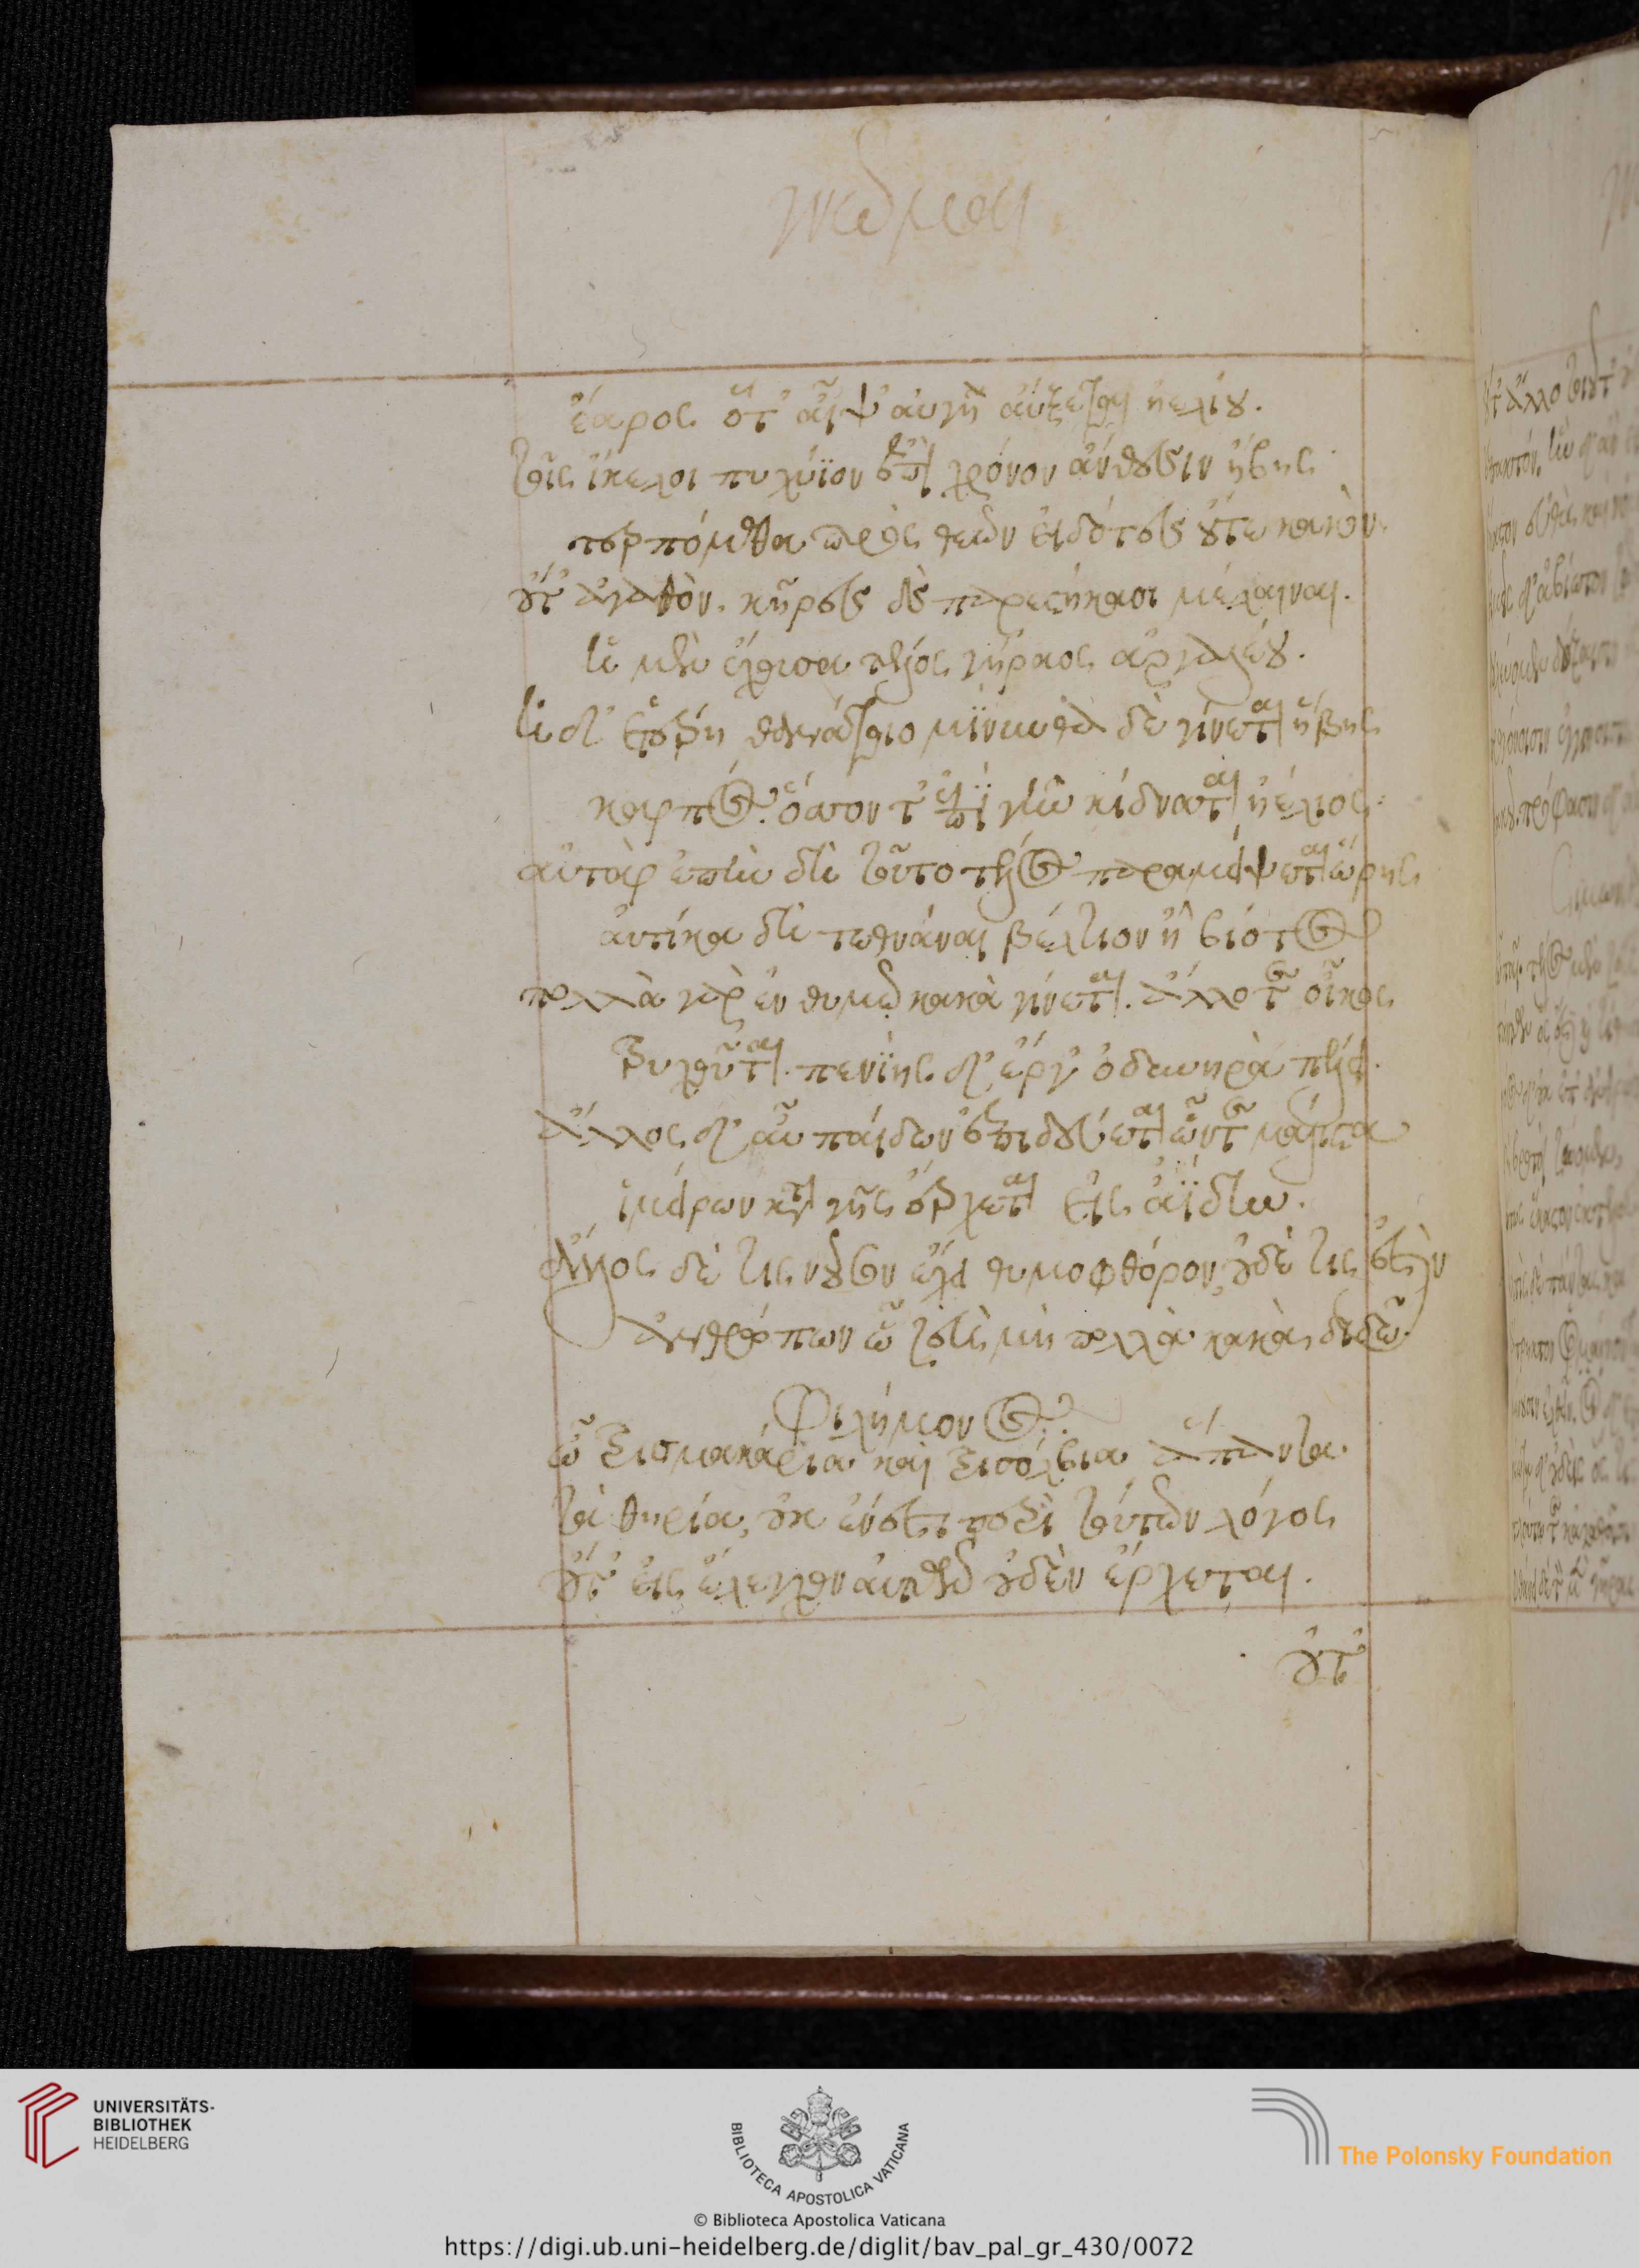 γνῶμαι
ἔαρος ὅτ' αἶψ' αὐγῇ αὔξεται ἠελίου.
τοῖς ἴκελοι πηχύϊον ἐπὶ χρόνον ἄνθεσιν ἥβης
τερπόμεθα πρὸς θεῶν εἰδότες οὔτε κακὸν.
οὔτ' ἀγαθὸν. κῆρες δὲ παρεστήκασι μέλαιναι.
ἡ μὲν ἔχουσα τέλος γήραος ἀργαλέου.
ἡ δ' ἑτέρη θανάτοιο μίνυνθα δὲ γίνεται ἥβης
καρπός. ὅσον τ' ἐπὶ γῆν κίδναται ἠέλιος.
αὐτὰρ ἐπὴν δὴ τοῦτο τέλος παραμείψεται ὥρης
αὐτίκα δὴ τεθνάναι βέλτιον ἢ βίοτος
πολλὰ γὰρ ἐν θυμῷ κακὰ γίνεται. ἄλλοτε οἶκος
τρυχοῦται. πενίης δ' ἔργ' ὀδυνηρὰ πέλει.
ἄλλος δ' αὖ παίδων ἐπιδεύεται ὧντε μάλιστα
ἱμείρων κατὰ γῆς ἔρχεται εἰς ἀΐδην.
ἄλλος δέ τις νοῦσον ἔχει θυμοφθόρον, οὐδέ τις ἐστὶν
ἀνθρώπων ᾧ ζεὺς μὴ πολλὰ κακὰ διδῷ.
Φιλήμονος.
ὦ τρισμακάρια καὶ τρισόλβια ἅπαντα
τὰ θηρία, οὐκ ἔνεστι περὶ τούτων λόγος
οὔτ' εἰς ἔλεγχον αὐτῶν οὐδὲν ἔρχεται.
οὔτ'
UNIVERSITÄTS-
BIBLIOTHEK
HEIDELBERG
BIBLIOTECA APOSTOLICA VATICANA
The Polonsky Foundation
© Biblioteca Apostolica Vaticana
https://digi.ub.uni-heidelberg.de/diglit/bav_pal_gr_430/0072